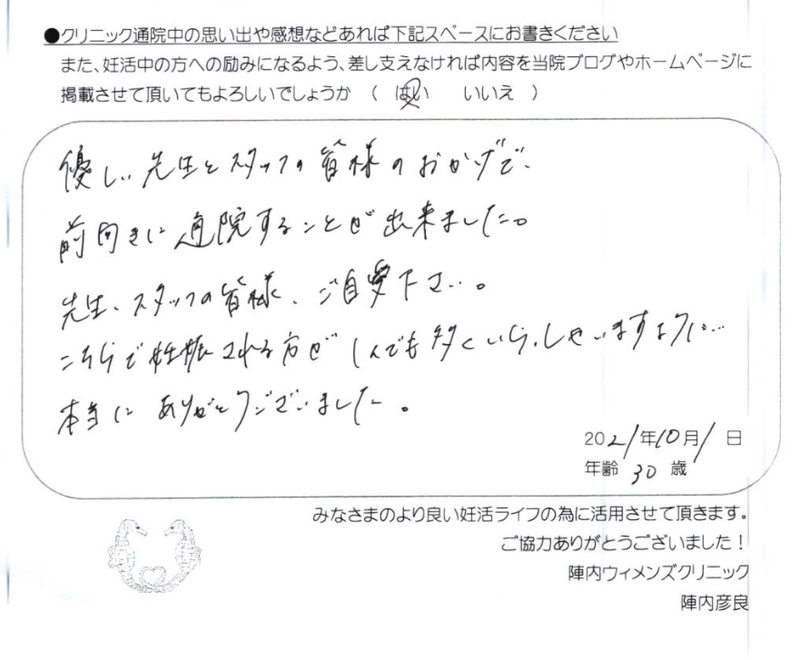 ●クリニック通院中の思い出や感想などあれば下記スペースにお書きください
また、妊活中の方への励みになるよう、差し支えなければ内容を当院ブログやホームページに
掲載させて頂いてもよろしいでしょうか ( はい いいえ )
優しい先生とスタッフの皆様のおかげで、
前向きに通院することが出来ました。
先生、スタッフの皆様、ご自愛下さい。
こちらで妊娠される方が1人でも多くいらっしゃいますように…
本当にありがとうございました。
2021年10月1日
年齢 30 歳
みなさまのより良い妊活ライフの為に活用させて頂きます。
ご協力ありがとうございました！
陣内ウィメンズクリニック
陣内彦良